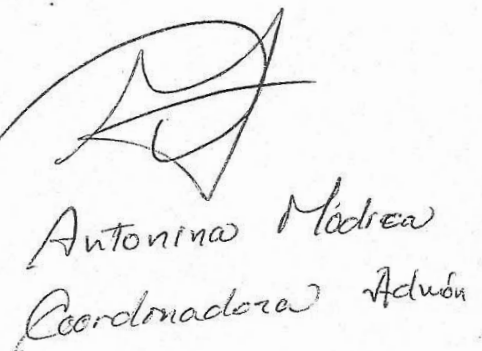 Antonina Módica
Coordinadora Admón